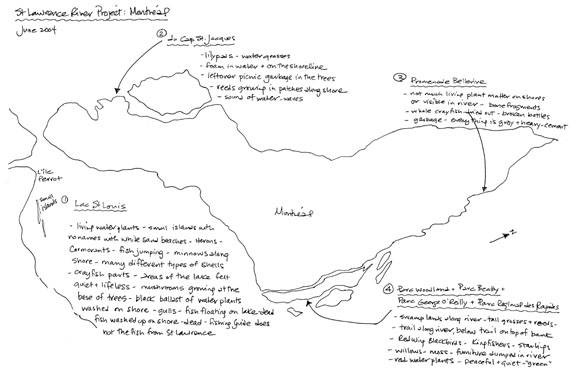 St Lawrence River Project: Montréal
June 2004
② du Cap St. Jacques
- lilypads - water grasses
- foam in water + on the shoreline
- leftover picnic garbage in the trees
- reeds growing in patches along shore
- sound of water - waves
③ Promenade Bellerive
- not much living plant matter on shores
or visible in river - bone fragments
- whole crayfish dried out - broken bottles
- garbage - everything is grey + heavy-cement
L'île
Perrot
small
islands
① Lac St Louis
- living water plants - small islands with
no names with white sand beaches - Herons -
Cormorants - fish jumping - minnows along
shore - many different types of shells
- crayfish parts - areas of the lake felt
quiet + lifeless - mushrooms growing at the
base of trees - black ballast of water plants
washed on shore - gulls - fish floating on lake-dead
fish washed up on shore - dead - fishing guide does
not the fish from St Lawrence
Montréal
N
④ Parc Woodland + Parc Beatty +
Parc George O'Reilly + Parc Régional des Rapides
- swamp lands along river - tall grasses + reeds -
- trail along river, below trail on top of bank
- Redwing Blackbirds - Kingfishers - starlings
- willows - moss - furniture dumped in river
- red water plants - peaceful + quiet - "green"